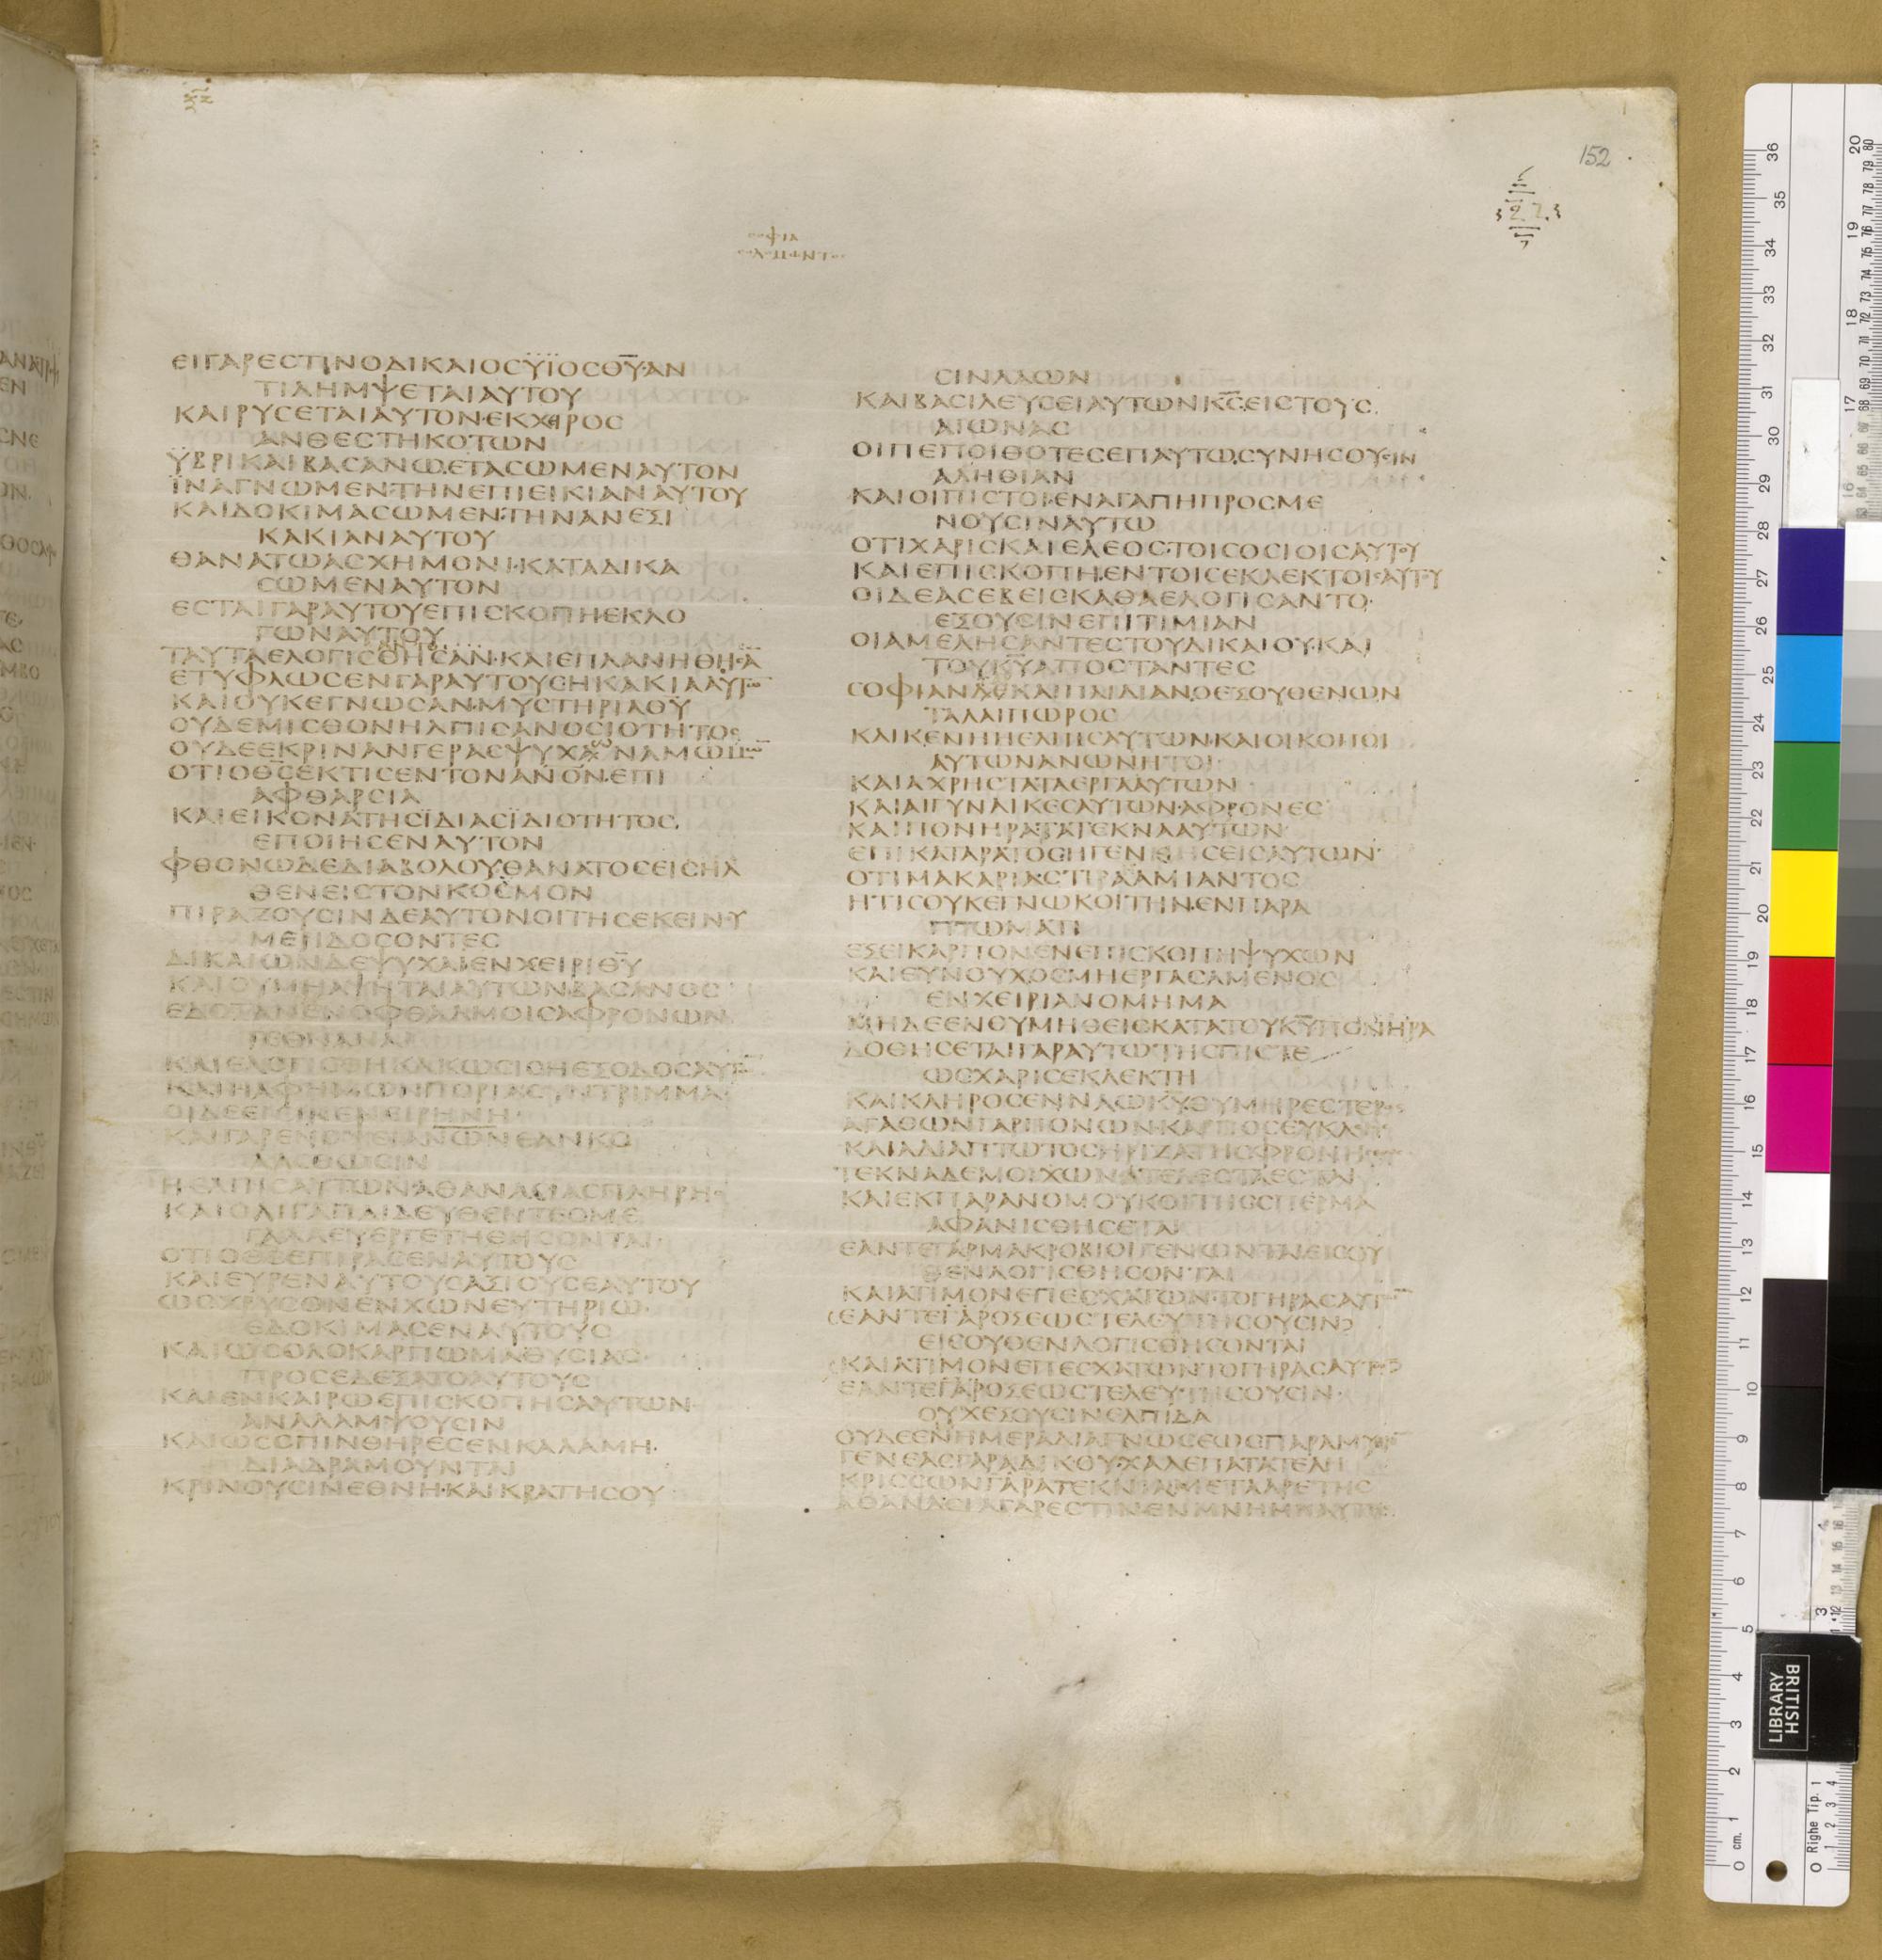 152
227
ϲοφια
ϲολομωντοϲ
ΕΙΓΑΡΕϹΤΙΝΟΔΙΚΑΙΟϹΫΪΟϹΘΥ̅·ΑΝ
ΤΙΛΗΜΨΕΤΑΙΑΥΤΟΥ
ΚΑΙΡΥϹΕΤΑΙΑΥΤΟΝ·ΕΚΧΕΙΡΟϹ
ΑΝΘΕϹΤΗΚΟΤΩΝ
ΫΒΡΙΚΑΙΒΑϹΑΝΩ·ΕΤΑϹΩΜΕΝΑΥΤΟΝ
ΪΝΑΓΝΩΜΕΝ·ΤΗΝΕΠΙΕΙΚΙΑΝΑΥΤΟΥ
ΚΑΙΔΟΚΙΜΑϹΩΜΕΝ·ΤΗΝΑΝΕΞΙ
ΚΑΚΙΑΝΑΥΤΟΥ
ΘΑΝΑΤΩΑϹΧΗΜΟΝΙ·ΚΑΤΑΔΙΚΑ
ϹΩΜΕΝΑΥΤΟΝ
ΕϹΤΑΙΓΑΡΑΥΤΟΥΕΠΙϹΚΟΠΗΕΚΛΟ
ΓΩΝΑΥΤΟΥ
ΤΑΥΤΑΕΛΟΓΙϹΘΗϹΑΝ·ΚΑΙΕΠΛΑΝΗΘΗϹΑ̅
ΕΤΥΦΛΩϹΕΝΓΑΡΑΥΤΟΥϹΗΚΑΚΙΑΑΥΤΩ̅
ΚΑΙΟΥΚΕΓΝΩϹΑΝ·ΜΥϹΤΗΡΙΑΘΥ̅
ΟΥΔΕΜΙϹΘΟΝΗΛΠΙϹΑΝΟϹΙΟΤΗΤΟϹ
ΟΥΔΕΕΚΡΙΝΑΝΓΕΡΑϹΨΥΧΩΝΑΜΩΜΩ̅
ΟΤΙΟΘ̅Ϲ̅ΕΚΤΙϹΕΝΤΟΝΑΝ̅ΟΝ̅·ΕΠΙ
ΑΦΘΑΡϹΙΑ
ΚΑΙΕΙΚΟΝΑΤΗϹΪΔΙΑϹΪΔΙΟΤΗΤΟϹ
ΕΠΟΙΗϹΕΝΑΥΤΟΝ
ΦΘΟΝΩΔΕΔΙΑΒΟΛΟΥ·ΘΑΝΑΤΟϹΕΙϹΗΛ
ΘΕΝΕΙϹΤΟΝΚΟϹΜΟΝ
ΠΙΡΑΖΟΥϹΙΝΔΕΑΥΤΟΝΟΙΤΗϹΕΚΕΙΝΟΥ
ΜΕΡΙΔΟϹΟΝΤΕϹ
ΔΙΚΑΙΩΝΔΕΨΥΧΑΙΕΝΧΕΙΡΙΘΥ̅
ΚΑΙΟΥΜΗΑΨΗΤΑΙΑΥΤΩΝΒΑϹΑΝΟϹ
ΕΔΟΞΑΝΕΝΟΦΘΑΛΜΟΙϹΑΦΡΟΝΩΝ
ΤΕΘΝΑΝΑΙ
ΚΑΙΕΛΟΓΙϹΘΗΚΑΚΩϹΙϹΗΕΞΟΔΟϹΑΥΤΩ̅
ΚΑΙΗΑΦΗΜΩΝΠΟΡΙΑϹΥΝΤΡΙΜΜΑ·
ΟΙΔΕΕΙϹΙΝΕΝΕΙΡΗΝΗ·
ΚΑΙΓΑΡΕΝΟΨΕΙΑΝΩΝΕΑΝΚΟ
ΛΑϹΘΩϹΙΝ
ΗΕΛΠΙϹΑΥΤΩΝ·ΑΘΑΝΑϹΙΑϹΠΛΗΡΗϹ
ΚΑΙΟΛΙΓΑΠΑΙΔΕΥΘΕΝΤΕϹΜΕ
ΓΑΛΑΕΥΕΡΓΕΤΗΘΗϹΟΝΤΑΙ·
ΟΤΙΟΘ̅Ϲ̅ΕΠΙΡΑϹΕΝΑΥΤΟΥϹ
ΚΑΙΕΥΡΕΝΑΥΤΟΥϹΑΞΙΟΥϹΕΑΥΤΟΥ
ΩϹΧΡΥϹΟΝΕΝΧΩΝΕΥΤΗΡΙΩ·
ΕΔΟΚΙΜΑϹΕΝΑΥΤΟΥϹ
ΚΑΙΩϹΟΛΟΚΑΡΠΩΜΑΘΥϹΙΑϹ·
ΠΡΟϹΕΔΕΞΑΤΟΑΥΤΟΥϹ
ΚΑΙΕΝΚΑΙΡΩΕΠΙϹΚΟΠΗϹΑΥΤΩΝ·
ΑΝΑΛΑΜΨΟΥϹΙΝ
ΚΑΙΩϹϹΠΙΝΘΗΡΕϹΕΝΚΑΛΑΜΗ·
ΔΙΑΔΡΑΜΟΥΝΤΑΙ
ΚΡΙΝΟΥϹΙΝΕΘΝΗ·ΚΑΙΚΡΑΤΗϹΟΥ
ϹΙΝΛΑΩΝ
ΚΑΙΒΑϹΙΛΕΥϹΕΙΑΥΤΩΝΚ̅Ϲ̅·ΕΙϹΤΟΥϹ
ΑΙΩΝΑϹ
ΟΙΠΕΠΟΙΘΟΤΕϹΕΠΑΥΤΩ·ϹΥΝΗϹΟΥϹΙΝ
ΑΛΗΘΙΑΝ
ΚΑΙΟΙΠΙϹΤΟΙ·ΕΝΑΓΑΠΗΠΡΟϹΜΕ
ΝΟΥϹΙΝΑΥΤΩ
ΟΤΙΧΑΡΙϹΚΑΙΕΛΕΟϹ·ΤΟΙϹΟϹΙΟΙϹΑΥΤΟΥ
ΚΑΙΕΠΙϹΚΟΠΗ·ΕΝΤΟΙϹΕΚΛΕΚΤΟΙϹΑΥΤΟΥ
ΟΙΔΕΑϹΕΒΕΙϹΚΑΘΑΕΛΟΓΙϹΑΝΤΟ·
ΕΞΟΥϹΙΝΕΠΙΤΙΜΙΑΝ
ΟΙΑΜΕΛΗϹΑΝΤΕϹΤΟΥΔΙΚΑΙΟΥ·ΚΑΙ
ΤΟΥΚ̅Υ̅ΑΠΟϹΤΑΝΤΕϹ
ϹΟΦΙΑΝΚΑΙΠΑΙΔΙΑΝ·ΟΕΞΟΥΘΕΝΩΝ
ΤΑΛΑΙΠΩΡΟϹ
ΚΑΙΚΕΝΗΗΕΛΠΙϹΑΥΤΩΝ·ΚΑΙΟΙΚΟΠΟΙ
ΑΥΤΩΝΑΝΩΝΗΤΟΙ·
ΚΑΙΑΧΡΗϹΤΑΤΑΕΡΓΑΑΥΤΩΝ
ΚΑΙΑΙΓΥΝΑΙΚΕϹΑΥΤΩΝ·ΑΦΡΟΝΕϹ
ΚΑΙΠΟΝΗΡΑΤΑΤΕΚΝΑΑΥΤΩΝ
ΕΠΙΚΑΤΑΡΑΤΟϹΗΓΕΝΕϹΕΙϹΑΥΤΩΝ·
ΟΤΙΜΑΚΑΡΙΑϹΤΙΡΑΑΜΙΑΝΤΟϹ
ΗΤΙϹΟΥΚΕΓΝΩΚΟΙΤΗΝ·ΕΝΠΑΡΑ
ΠΤΩΜΑΤΙ
ΕΞΕΙΚΑΡΠΟΝΕΝΕΠΙϹΚΟΠΗΨΥΧΩΝ
ΚΑΙΕΥΝΟΥΧΟϹΜΗΕΡΓΑϹΑΜΕΝΟϹ
ΕΝΧΕΙΡΙΑΝΟΜΗΜΑ
ΜΗΔΕΕΝΘΥΜΗΘΕΙϹΚΑΤΑΤΟΥΚ̅Υ̅ΠΟΝΗΡΑ
ΔΟΘΗϹΕΤΑΙΓΑΡΑΥΤΩΤΗϹΠΙϹΤΕ
ΩϹΧΑΡΙϹΕΚΛΕΚΤΗ
ΚΑΙΚΛΗΡΟϹΕΝΝΑΩΚ̅Υ̅ΘΥΜΗΡΕϹΤΕΡΟϹ
ΑΓΑΘΩΝΓΑΡΠΟΝΩΝ·ΚΑΡΠΟϹΕΥΚΛΕΗϹ
ΚΑΙΑΔΙΑΠΤΩΤΟϹΗΡΙΖΑΤΗϹΦΡΟΝΗϹΕΩϹ
ΤΕΚΝΑΔΕΜΟΙΧΩΝΑΤΕΛΕϹΤΑΕϹΤΑΙ
ΚΑΙΕΚΠΑΡΑΝΟΜΟΥΚΟΙΤΗϹϹΠΕΡΜΑ
ΑΦΑΝΙϹΘΗϹΕΤΑΙ
ΕΑΝΤΕΓΑΡΜΑΚΡΟΒΙΟΙΓΕΝΩΝΤΑΙΕΙϹΟΥ
ΘΕΝΛΟΓΙϹΘΗϹΟΝΤΑΙ
ΚΑΙΑΤΙΜΟΝΕΠΕϹΧΑΤΩΝ·ΤΟΓΗΡΑϹΑΥΤΩ̅
ΕΑΝΤΕΓΑΡΟΞΕΩϹΤΕΛΕΥΤΗϹΟΥϹΙΝ
ΕΙϹΟΥΘΕΝΛΟΓΙϹΘΗϹΟΝΤΑΙ
ΚΑΙΑΤΙΜΟΝΕΠΕϹΧΑΤΩΝΤΟΓΗΡΑϹΑΥΤΩ̅
ΕΑΝΤΕΓΑΡΟΞΕΩϹΤΕΛΕΥΤΗϹΟΥϹΙΝ·
ΟΥΧΕΞΟΥϹΙΝΕΛΠΙΔΑ
ΟΥΔΕΕΝΗΜΕΡΑΔΙΑΓΝΩϹΕΩϹΠΑΡΑΜΥΘΙΟ̅
ΓΕΝΕΑϹΓΑΡΑΔΙΚΟΥ·ΧΑΛΕΠΑΤΑΤΕΛΗ
ΚΡΙϹϹΩΝΓΑΡΑΤΕΚΝΙΑΜΕΤΑΑΡΕΤΗϹ
ΑΘΑΝΑϹΙΑΓΑΡΕϹΤΙΝΕΝΜΝΗΜΗΑΥΤΗϹ
BRITISH
LIBRARY